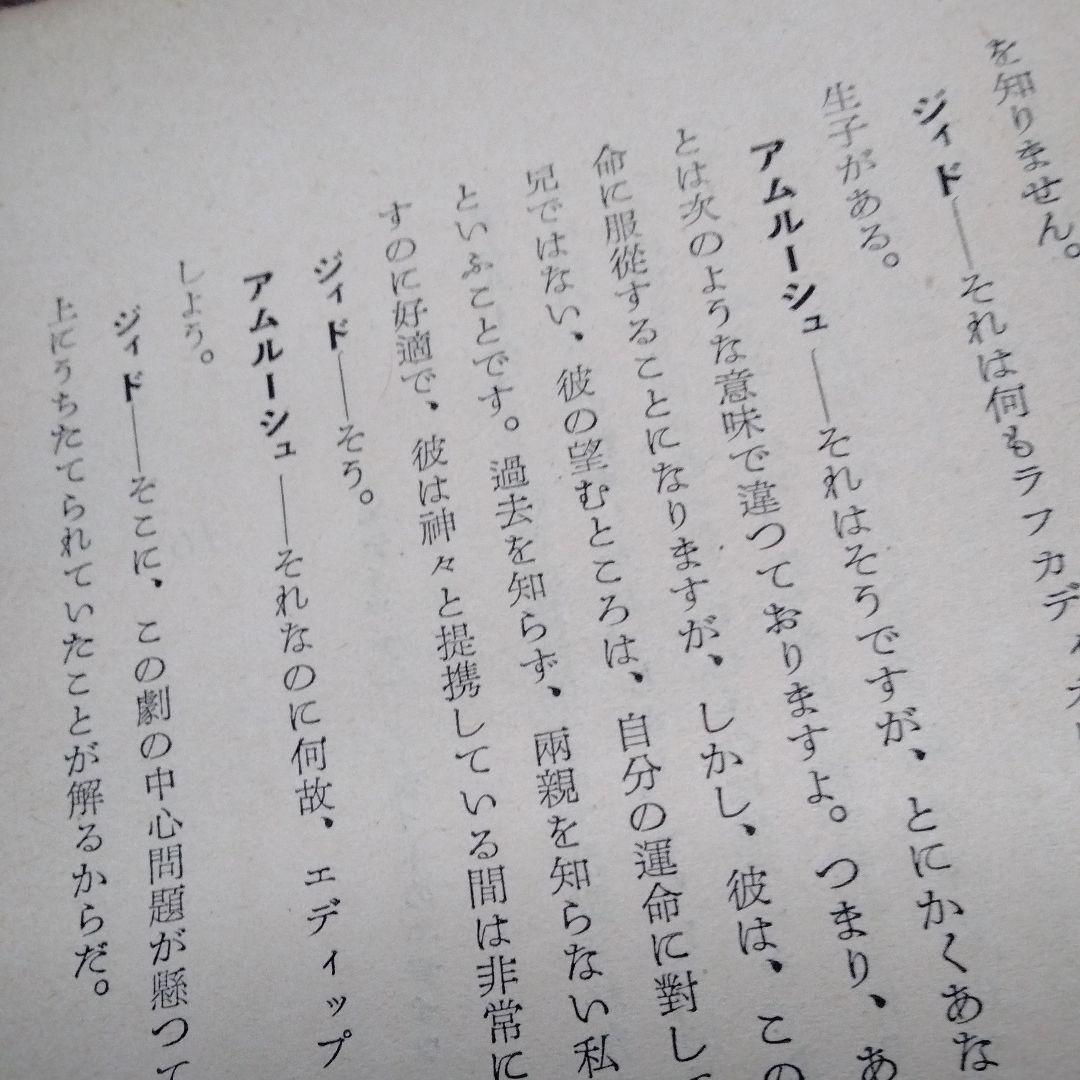 を知りません。
ジィド――それは何もラフカディオ
生子がある。
アムルーシュ――それはそうですが、とにかくあな
とは次のような意味で違つておりますよ。つまり、あ
命に服從することになりますが、しかし、彼は、この
兄ではない、彼の望むところは、自分の運命に對して
といふことです。過去を知らず、兩親を知らない私
すのに好適で、彼は神々と提携している間は非常に
ジィド――そう。
アムルーシュ――それなのに何故、エディップ
しよう。
ジィド――そこに、この劇の中心問題が懸つて
上にうちたてられていたことが解るからだ。